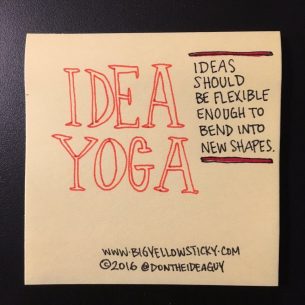 IDEA
YOGA
IDEAS
SHOULD
BE FLEXIBLE
ENOUGH TO
BEND INTO
NEW SHAPES.
WWW.BIGYELLOWSTICKY.COM
©2016 @DONTHEIDEAGUY